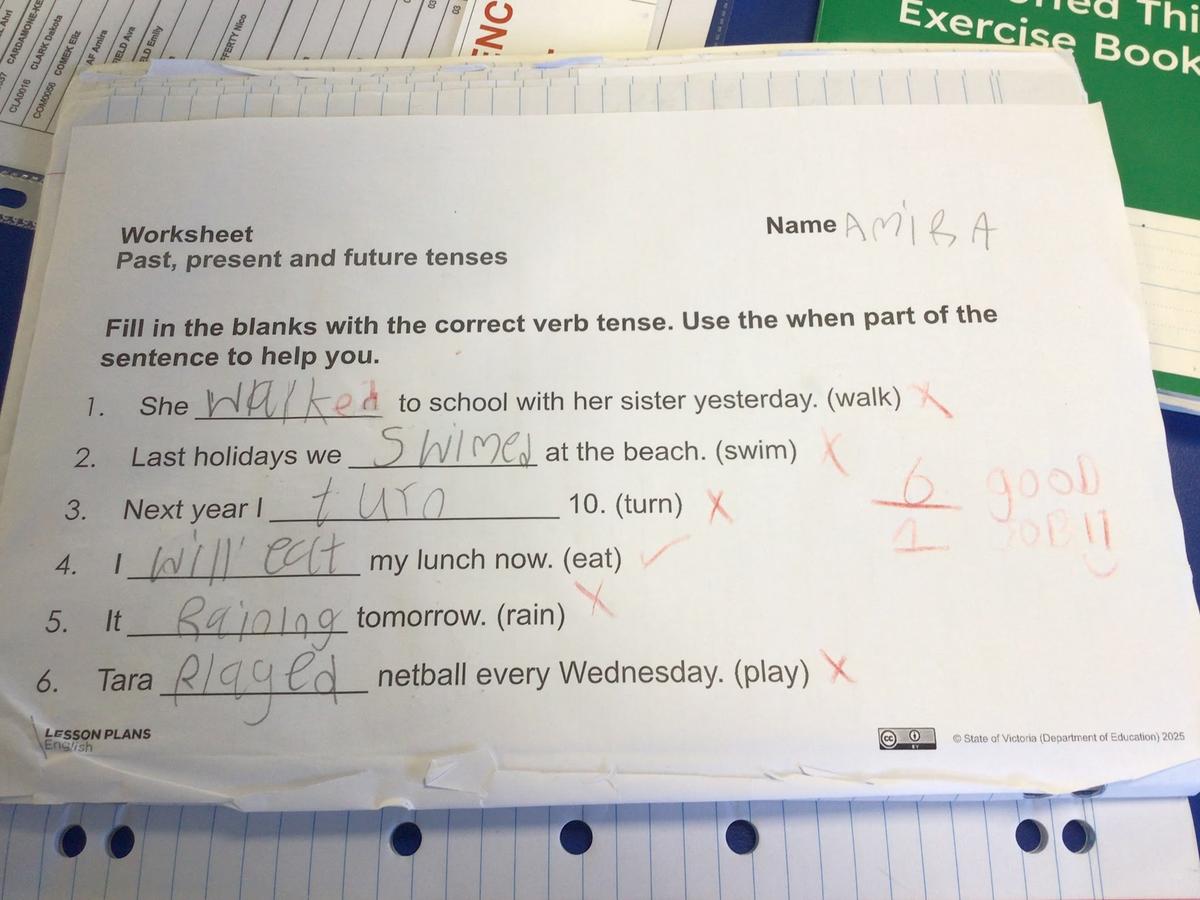 CARDAMONE-KE
CLA0016 CLARK Dakota
COM0056 COMEK Eliz
AF Amira
IELD Ava
LD Emily
FERTY Nico
03
03
ENC
Exercise Book
Worksheet
Past, present and future tenses
Name AMIRA
Fill in the blanks with the correct verb tense. Use the when part of the
sentence to help you.
1. She walked to school with her sister yesterday. (walk) X
2. Last holidays we Swimed at the beach. (swim) X
3. Next year I turn 10. (turn) X
4. I will eat my lunch now. (eat) ✓
5. It Raining tomorrow. (rain) X
6. Tara Played netball every Wednesday. (play) X
6 gooD
1 JOB!!
LESSON PLANS
English
cc BY © State of Victoria (Department of Education) 2025